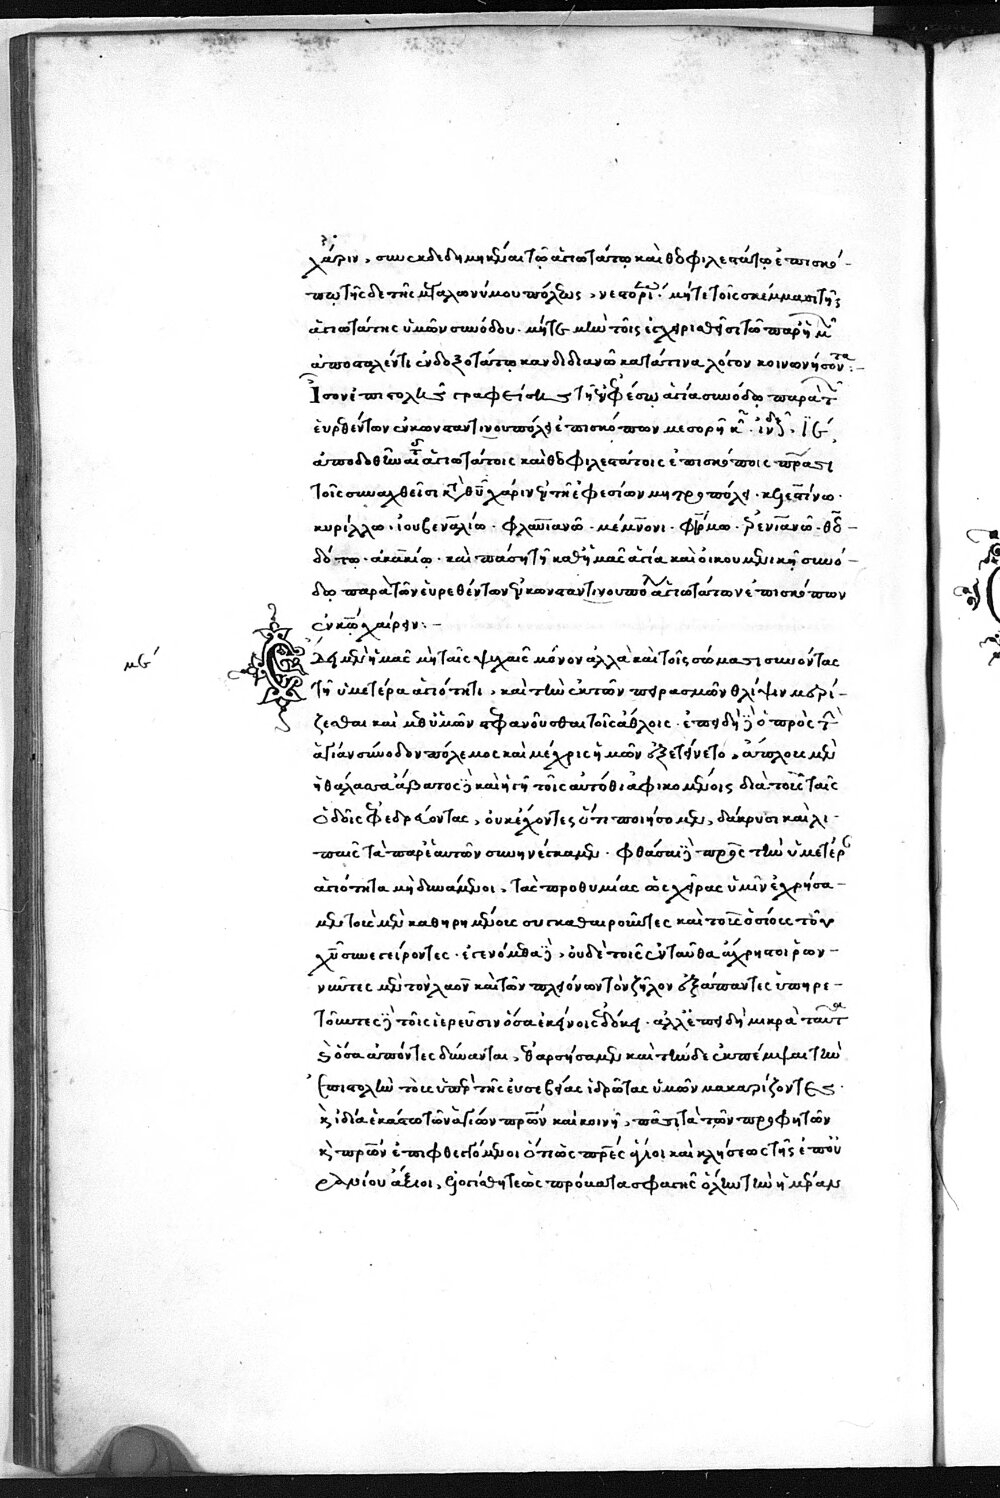 χάριν, συνεκδεδημηκέναι τῶ ἁγιωτάτω καὶ θεοφιλεστάτω ἐπισκό-
πω τῆσδε τῆς μεγαλωνύμου πόλεως, νεστορίω· μήτε τοῖς σκέμμασι τῆς
ἁγιωτάτης ὑμῶν συνόδου· μήτε μὴν τοῖς ἐγχειρισθεῖσι τῶ παρ' ἡμῶν
ἀποσταλέντι ἐνδοξοτάτω κανδιδιανῶ κατά τινα λόγον κοινωνήσοντα:-
Ἴσον ἐπιστολῆς γραφείσης τῆ ἐν ἐφέσω ἁγία συνόδω παρὰ τῶν
εὑρεθέντων ἐν κωνσταντινουπόλει ἐπισκόπων μεσορῆ κ ἰνδ
ἀποδοθεῖσαι ἁγιωτάτοις καὶ θεοφιλεστάτοις ἐπισκόποις πατράσι
τοῖς συναχθεῖσι κατὰ θεοῦ χάριν ἐν τῆ ἐφεσίων μητροπόλει· κελεστίνω·
κυρίλλω· ἰουβεναλίω· φλαπιανῶ· μέμνονι· φίρμω· ῥενιανῶ· θεο-
δότω· ἀκακίω· καὶ πάση τῆ καθ' ἡμᾶς ἁγία καὶ οἰκουμενικῆ συνό-
δω παρὰ τῶν εὑρεθέντων ἐν κωνσταντινουπόλει ἁγιωτάτων ἐπισκόπων
ἐν κυρίω χαίρειν:-
με´
Ἔδει μὲν ἡμᾶς μὴ ταῖς ψιλαῖς μόνον ἀλλὰ καὶ τοῖς σώμασι συνόντας
τῆ ὑμετέρα ἁγιότητι, καὶ τὴν ἐκ τῶν πειρασμῶν θλίψιν μερί-
ζεσθαι καὶ μεθ' ὑμῶν στεφανοῦσθαι τοῖς ἄθλοις· ἐπειδὴ δὲ ὁ πρὸς τὴν
ἁγίαν σύνοδον πόλεμος καὶ μέχρις ἡμῶν ἐξετείνετο, ἄπλους μὲν
ἡ θάλασσα ἄβατος δὲ καὶ ἡ γῆ τοῖς αὐτόθι ἀφικομένοις διὰ τοὺς ταῖς
ὁδοῖς ἐφεδρεύοντας, οὐκ ἔχοντες ὅ τι ποιήσομεν, δάκρυσι καὶ λι-
ταῖς τὰ παρ' ἑαυτῶν συνηνέγκαμεν· φθάσαι δὲ πρὸς τὴν ὑμετέραν
ἁγιότητα μὴ δυνάμενοι, τὰς προθυμίας ὡς χεῖρας ὑμῖν ἐχρήσα-
μεν τοῖς μὲν καθηρημένοις συγκαθαιροῦντες καὶ τοῖς ὁσίοις τὸν
χριστὸν συνεγείροντες· ἐγενόμεθα δὲ, οὐδὲ τοῖς ἐνταῦθα ἄχρηστοι ῥων-
νύντες μὲν τὸν λαὸν καὶ τῶν πλειόνων τὸν ζῆλον ἐξάπτοντες ὑπηρε-
τοῦντες δὲ τοῖς ἱερεῦσιν ὅσα ἐκείνοις ἐδόκει· ἀλλ' ἐπειδὴ μικρὰ ταῦτα
καὶ ὅσα ἀπόντες δύνανται, ἐθαρσήσαμεν καὶ τήνδε ἐκπέμψαι τὴν
ἐπιστολὴν τοὺς ὑπὲρ τῆς εὐσεβείας ἱδρῶτας ὑμῶν μακαρίζοντες·
καὶ ἰδία ἑκάστω τῶν ἁγίων πατέρων καὶ κοινῆ, πᾶσι τὰ τῶν προφητῶν
καὶ πατέρων ἐπιφθεγγόμενοι ὅπως πατρὸς ἥλοι καὶ κλήσεως τῆς ἐπου
ρανίου ἄξιοι, ἐλογίσθητε ὡς πρόβατα σφαγῆς ὅλην τὴν ἡμέραν